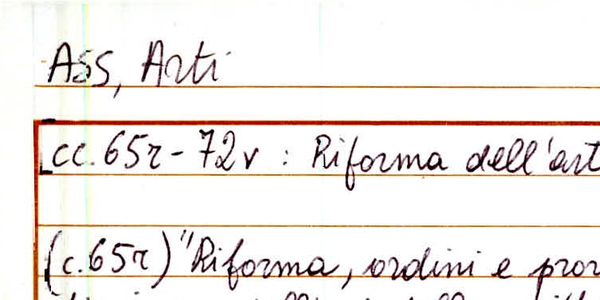 Ass, Arti
[cc. 65r - 72v : Riforma dell'art
(c. 65r) "Riforma, ordini e pror